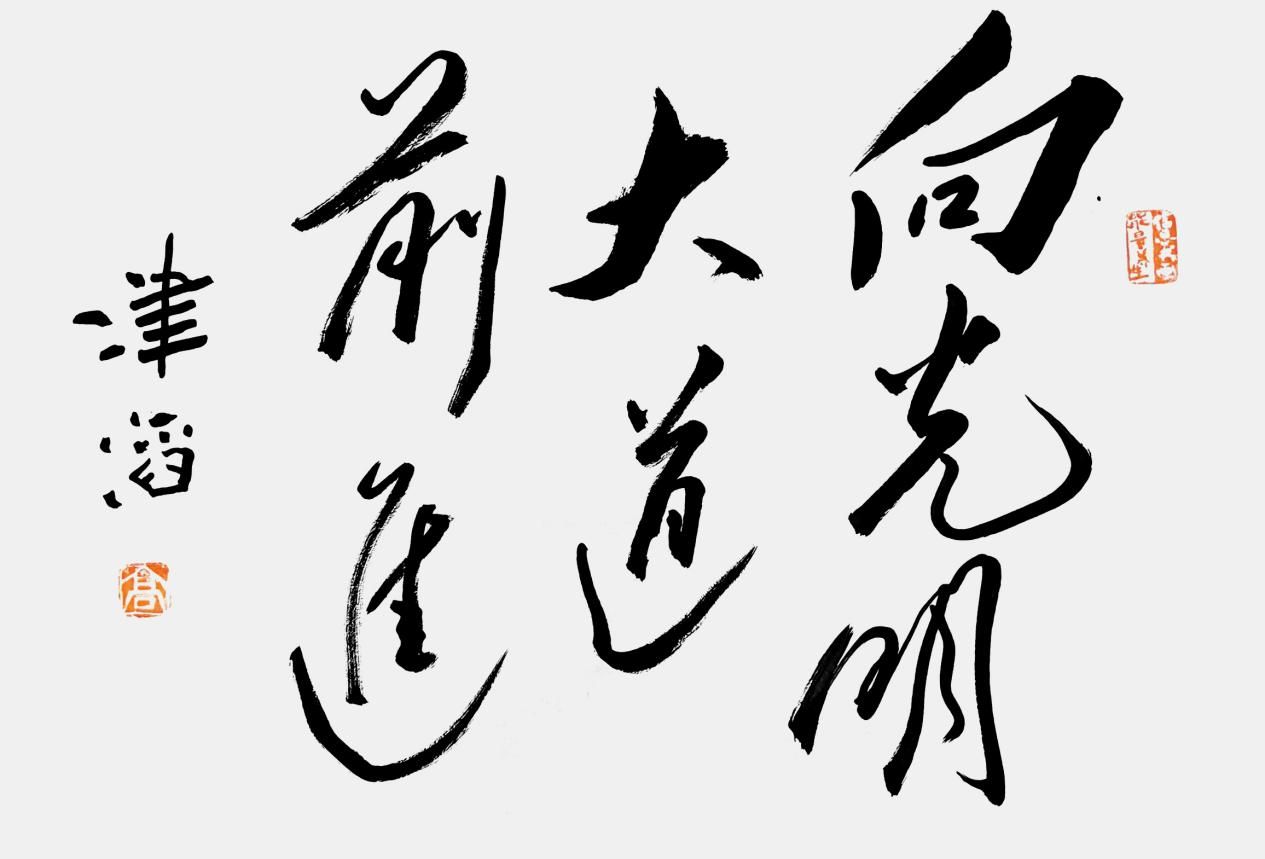 向光明
大道
前進
津滔
高